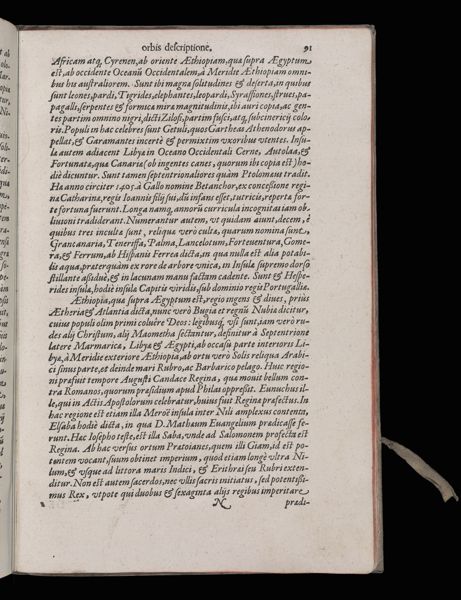 orbis descriptione. 91
Africam atq; Cyrenen, ab oriente Æthiopiam, quæ supra Ægyptum
est, ab occidente Oceanũ Occidentalem, à Meridie Æthiopiam omni-
bus his australiorem. Sunt ibi magna solitudines & deserta, in quibus
sunt leones, pardi, Tigrides, elephantes, leopardi, Syrassiones, strues, pa-
pagalli, serpentes & formicæ miræ magnitudinis, ibi auri copia, ac gen-
tes partim omnino nigri, dicti Zilosi, partim fusci, atq; subcinericij colo-
ris. Populi in hac celebres sunt Getuli, quos Gartheas Athenodorus ap-
pellat, & Garamantes incertè & permixtim vxoribus vtentes. Insu-
læ autem adiacent Libyæ in Oceano Occidentali Cerne, Autolaæ, &
Fortunatæ, quæ Canariæ (ob ingentes canes, quorum ibi copia est) ho-
diè dicuntur. Sunt tamen septentrionaliores quàm Ptolomæus tradit.
Hæ anno circiter 1405. à Gallo nomine Betanchor, ex concessione regi-
næ Catharinæ, regis Ioannis filij sui, dũ infans esset, tutricis, repertæ for-
te fortuna fuerunt. Longa namq; annorũ curricula incognitas iam ob-
liuioni tradiderant. Numerantur autem, vt quidam aiunt, decem, è
quibus tres incultæ sunt, reliquæ verò cultæ, quarum nomina sunt,
Grancanaria, Teneriffa, Palma, Lancelotum, Forteuentura, Gome-
ra, & Ferrum, ab Hispanis Ferrea dicta, in qua nulla est alia potabi-
lis aqua, præterquàm ex rore de arbore vnica, in Insulæ supremo dorso
stillante assiduè, & in lacunam manu factam cadente. Sunt & Hespe-
rides insulæ, hodiè insulæ Capitis viridis, sub dominio regis Portugalliæ.
Æthiopia, quæ supra Ægyptum est, regio ingens & diues, prius
Ætheria & Atlantia dicta, nunc verò Bugia et regnũ Nubiæ dicitur,
cuius populi olim primi coluêre Deos: legibusq; vsi sunt, iam verò ru-
des alij Christum, alij Maometha sectantur, definitur à Septentrione
latere Marmaricæ, Libyæ & Ægypti, ab occasu parte interioris Li-
byæ, à Meridie exteriore Æthiopia, ab ortu verò Solis reliqua Arabi-
ci sinus parte, et deinde mari Rubro, ac Barbarico pelago. Huic regio-
ni præfuit tempore Augusti Candace Regina, quæ mouit bellum con-
tra Romanos, quorum præsidium apud Philas oppressit. Eunuchus il-
le, qui in Actis Apostolorum celebratur, huius fuit Reginæ præfectus. In
hac regione est etiam illa Meroë insula inter Nili amplexus contenta,
Elsaba hodiè dicta, in qua D. Mathæum Euangelium prædicasse fe-
runt. Hac Iosepho teste, est illa Saba, vnde ad Salomonem profecta est
Regina. Ab hac versus ortum Pratoianes, quem illi Giam, id est po-
tentem vocant, suum obtinet imperium, quod etiam longè vltra Ni-
lum, & vsque ad littora maris Indici, & Erithræi seu Rubri exten-
ditur. Non est autem sacerdos, nec vllis sacris initiatus, sed potentissi-
mus Rex, vtpote qui duobus & sexaginta alijs regibus imperitare
N prædi-